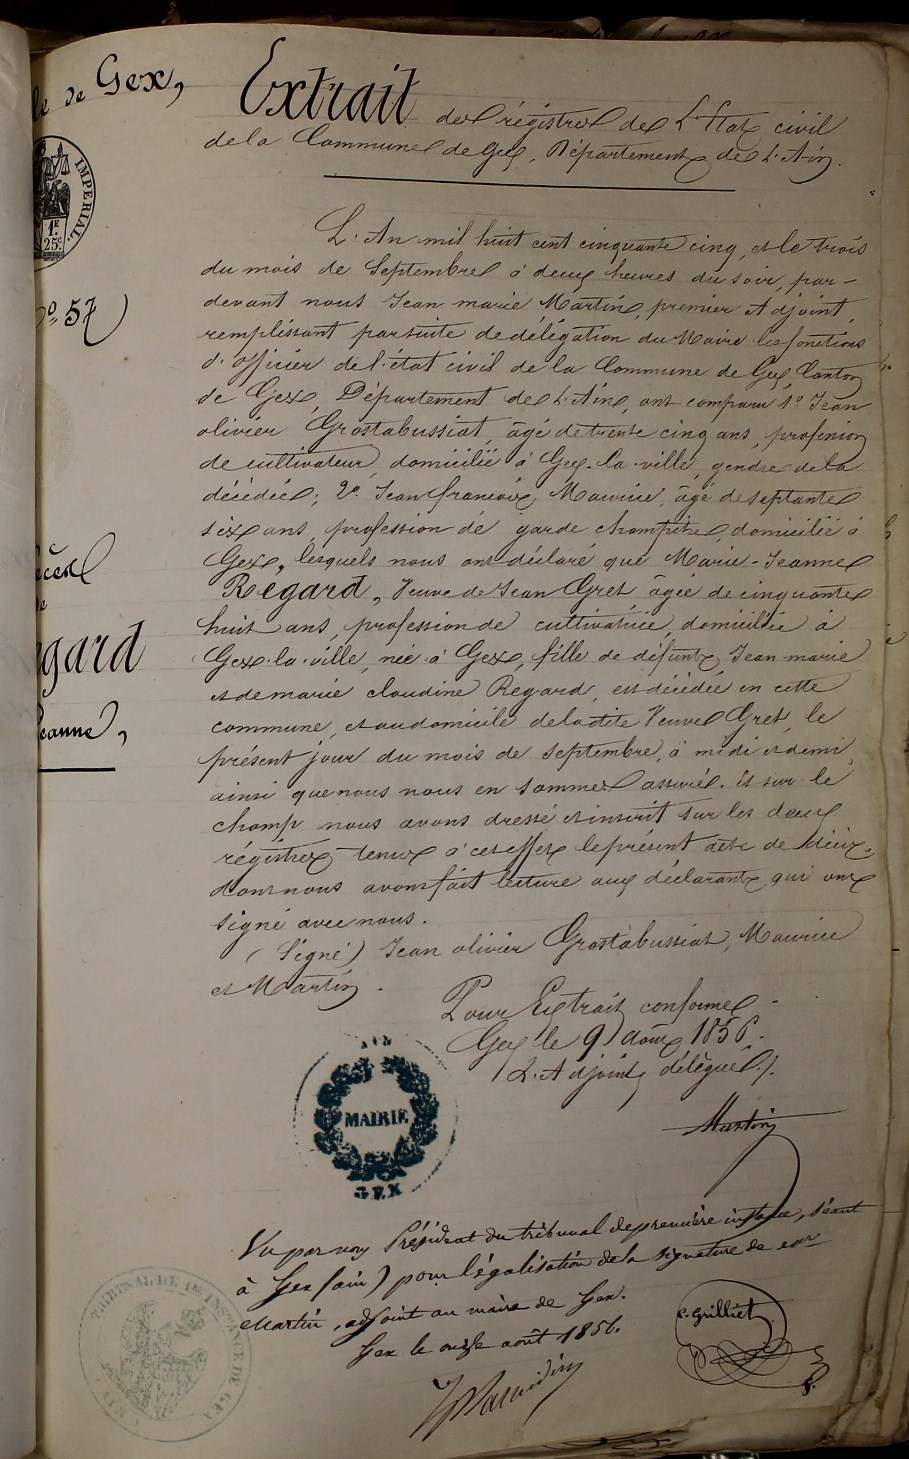 le de Gex,
Extrait des régistres de L'Etat civil
de la Commune de Gex, Département de L'Ain.
IMPERIAL.
1F
25c.
No. 57
L'An mil huit cent cinquante cinq, et le trois
du mois de Septembre à deux heures du soir, par-
devant nous Jean marie Martin, premier Adjoint,
remplissant par suite de délégation du Maire les fonctions
d'officier de l'état civil de la Commune de Gex Canton
de Gex, Département de L'Ain, ont comparu 1o. Jean
olivier Grostabussiat, âgé de trente cinq ans, profession
de cultivateur, domicilié à Gex-la-ville, gendre de la
décédée; 2o. Jean françois Maurice, âgé de septante
six ans, profession de garde champêtre, domicilié à
Gex, lesquels nous ont déclaré que Marie-Jeanne
Regard, Veuve de Jean Gret âgée de cinquante
huit ans, profession de cultivatrice, domiciliée à
Gex-la-ville, née à Gex, fille de défunts Jean marie
et de marie claudine Regard, est décédée en cette
commune, et au domicile de la dite Veuve Gret, le
présent jour du mois de septembre, à midi et demi,
ainsi que nous nous en sommes assurés. Et sur le
champ nous avons dressé et inscrit sur les deux
régistres tenus à cet effet le présent acte de décès,
dont nous avons fait lecture aux déclarants qui ont
signé avec nous.
(Signé) Jean olivier Grostabussiat, Maurice
et Martin.
écès
de
egard
Jeanne,
Pour Extrait conforme
Gex le 9 août 1856.
L'Adjoint délégué ./.
Martin
AIN
MAIRIE
GEX
Vu par nous Président du tribunal de première instance, séant
à Gex (ain) pour légalisation de la signature de mr
Martin, adjoint au maire de Gex.
Gex le onze août 1856.
C. Grilliet
TRIBUNAL DE 1RE INSTANCE DE GEX